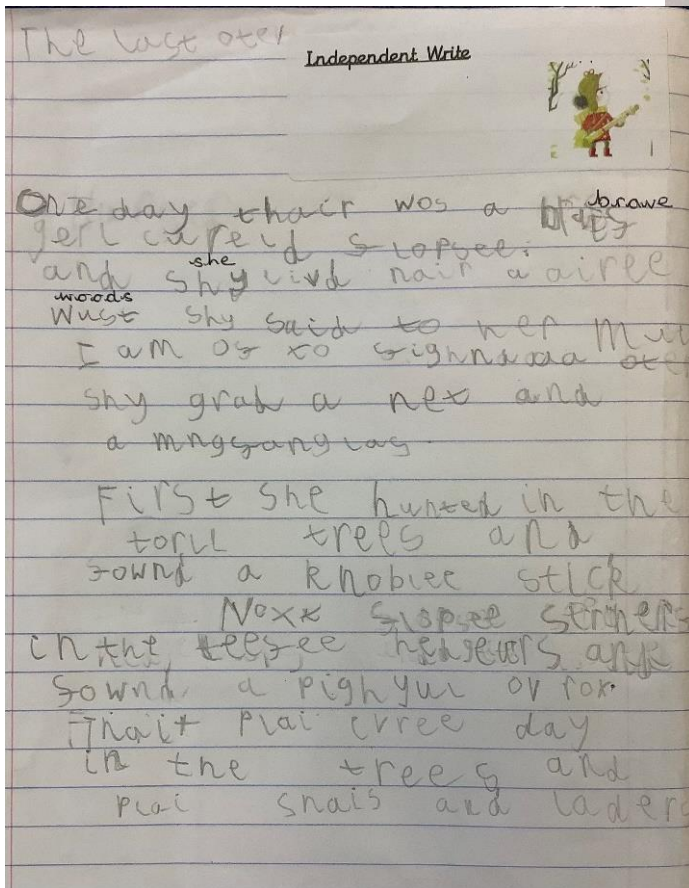 The last oter
Independent Write
One day thair wos a brawe
gerl careld flopsee.
and she shy livd nair a airee
woods
Wust shy said to her Mu
I am of to fighnd a oter
Shy grab a net and
a
First she hunted in the
torll trees and
fownd a knoblee stick
Noxt flopsee
in the leefee and
fownd a pighyul ov rox.
Thait plai evree day
in the trees and
plai snais and lader